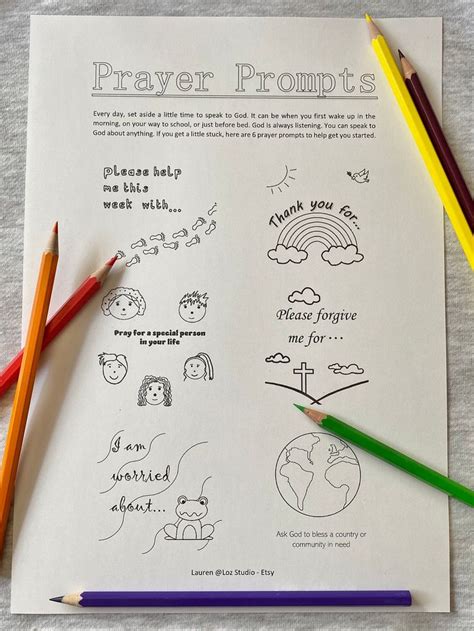 Prayer Prompts
Every day, set aside a little time to speak to God. It can be when you first wake up in the
morning, on your way to school, or just before bed. God is always listening. You can speak to
God about anything. If you get a little stuck, here are 6 prayer prompts to help get you started.
please help
me this
week with...
Thank you for...
Pray for a special person
in your life
Please forgive
me for...
I am
worried
about...
Ask God to bless a country or
community in need
Lauren @Loz Studio - Etsy